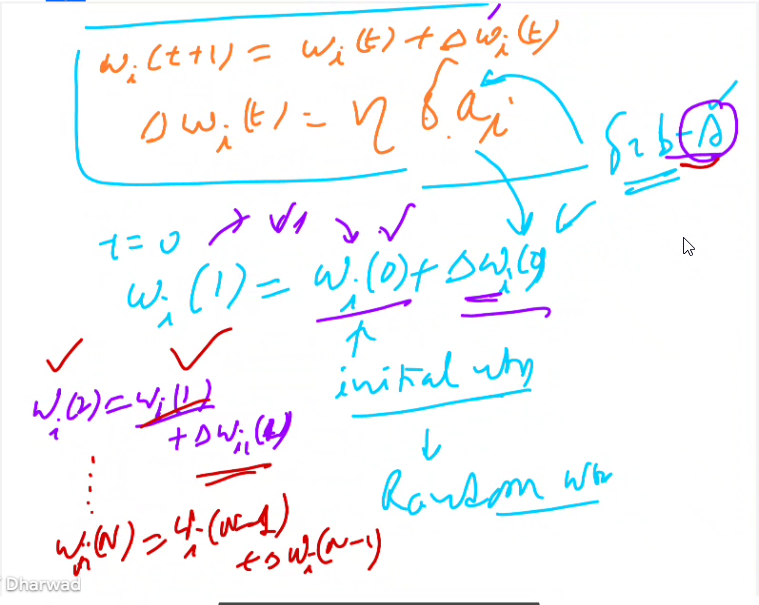 w_i(t+1) = w_i(t) + Δw_i(t)
Δw_i(t) = η δ a_i
δ = b - s
t = 0
w_i(1) = w_i(0) + Δw_i(0)
initial wts
Random wts
w_i(2) = w_i(1)
+ Δw_i(1)
w_i(N) = w_i(N-1)
+ Δw_i(N-1)
Dharwad